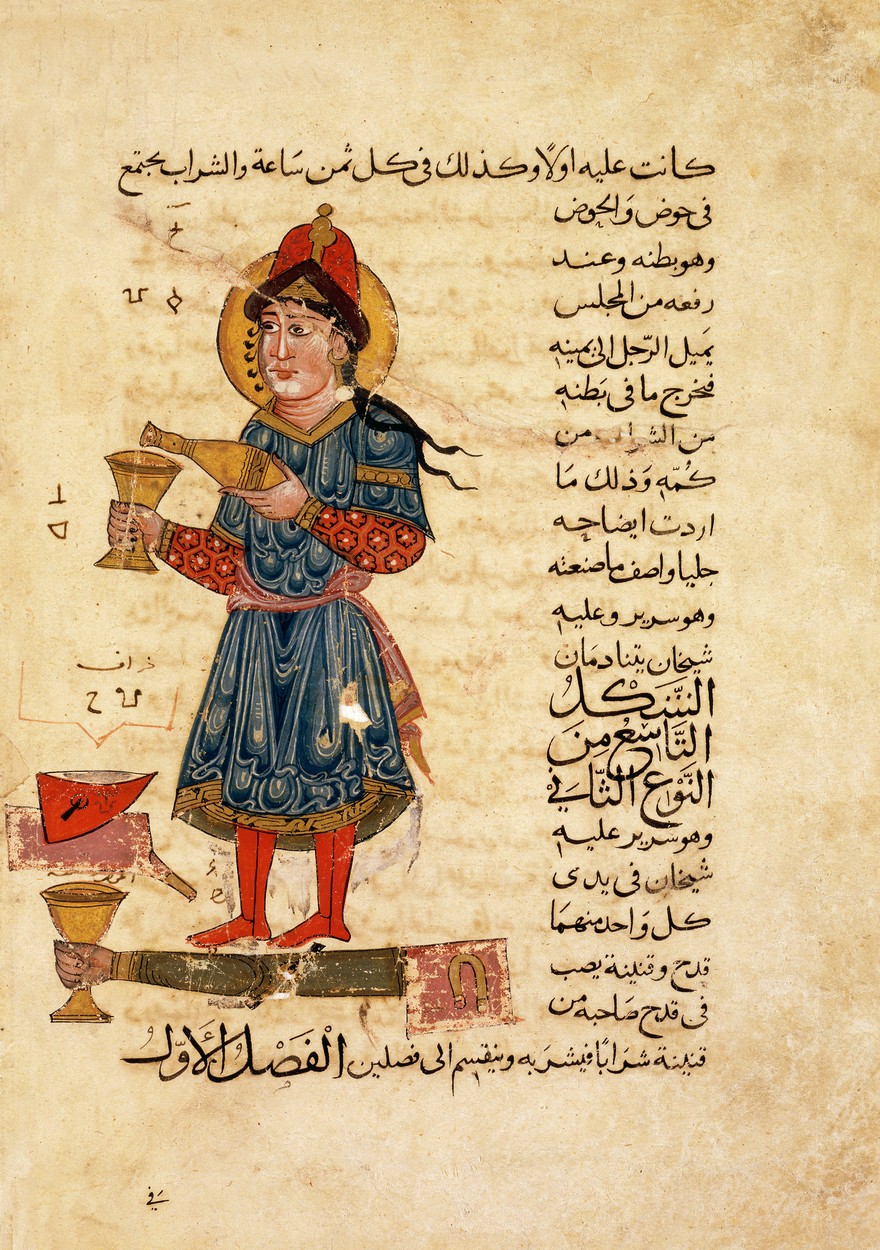 كانت عليه اولًا وكذلك فى كل ثمن سَاعة والشراب يجتمع
فى حوض وَالحوض
وهو بطنه وعند
رفعه من المجلس
يَميل الرّجل الى يمينه
فيخرج ما فى بَطنه
من الشراب من
كُمّه وَذلك مَا
اردت ايضاحه
جليا واصف ما صنعته
وهو سرير وعليه
شيخان يتنادمَان
الشَّكلُ
التَّاسعُ مِنَ
النَّوْعِ الثَّانِي
وهو سرير عليه
شيخان فى يدى
كل وَاحد منهمَا
قدح وقنينة يصب
فى قدح صَاحبه من
قنينة شَرَابًا فيشرَبه وينقسم الى فصلين الْفَصْلُ الْأَوَّلُ
فِي